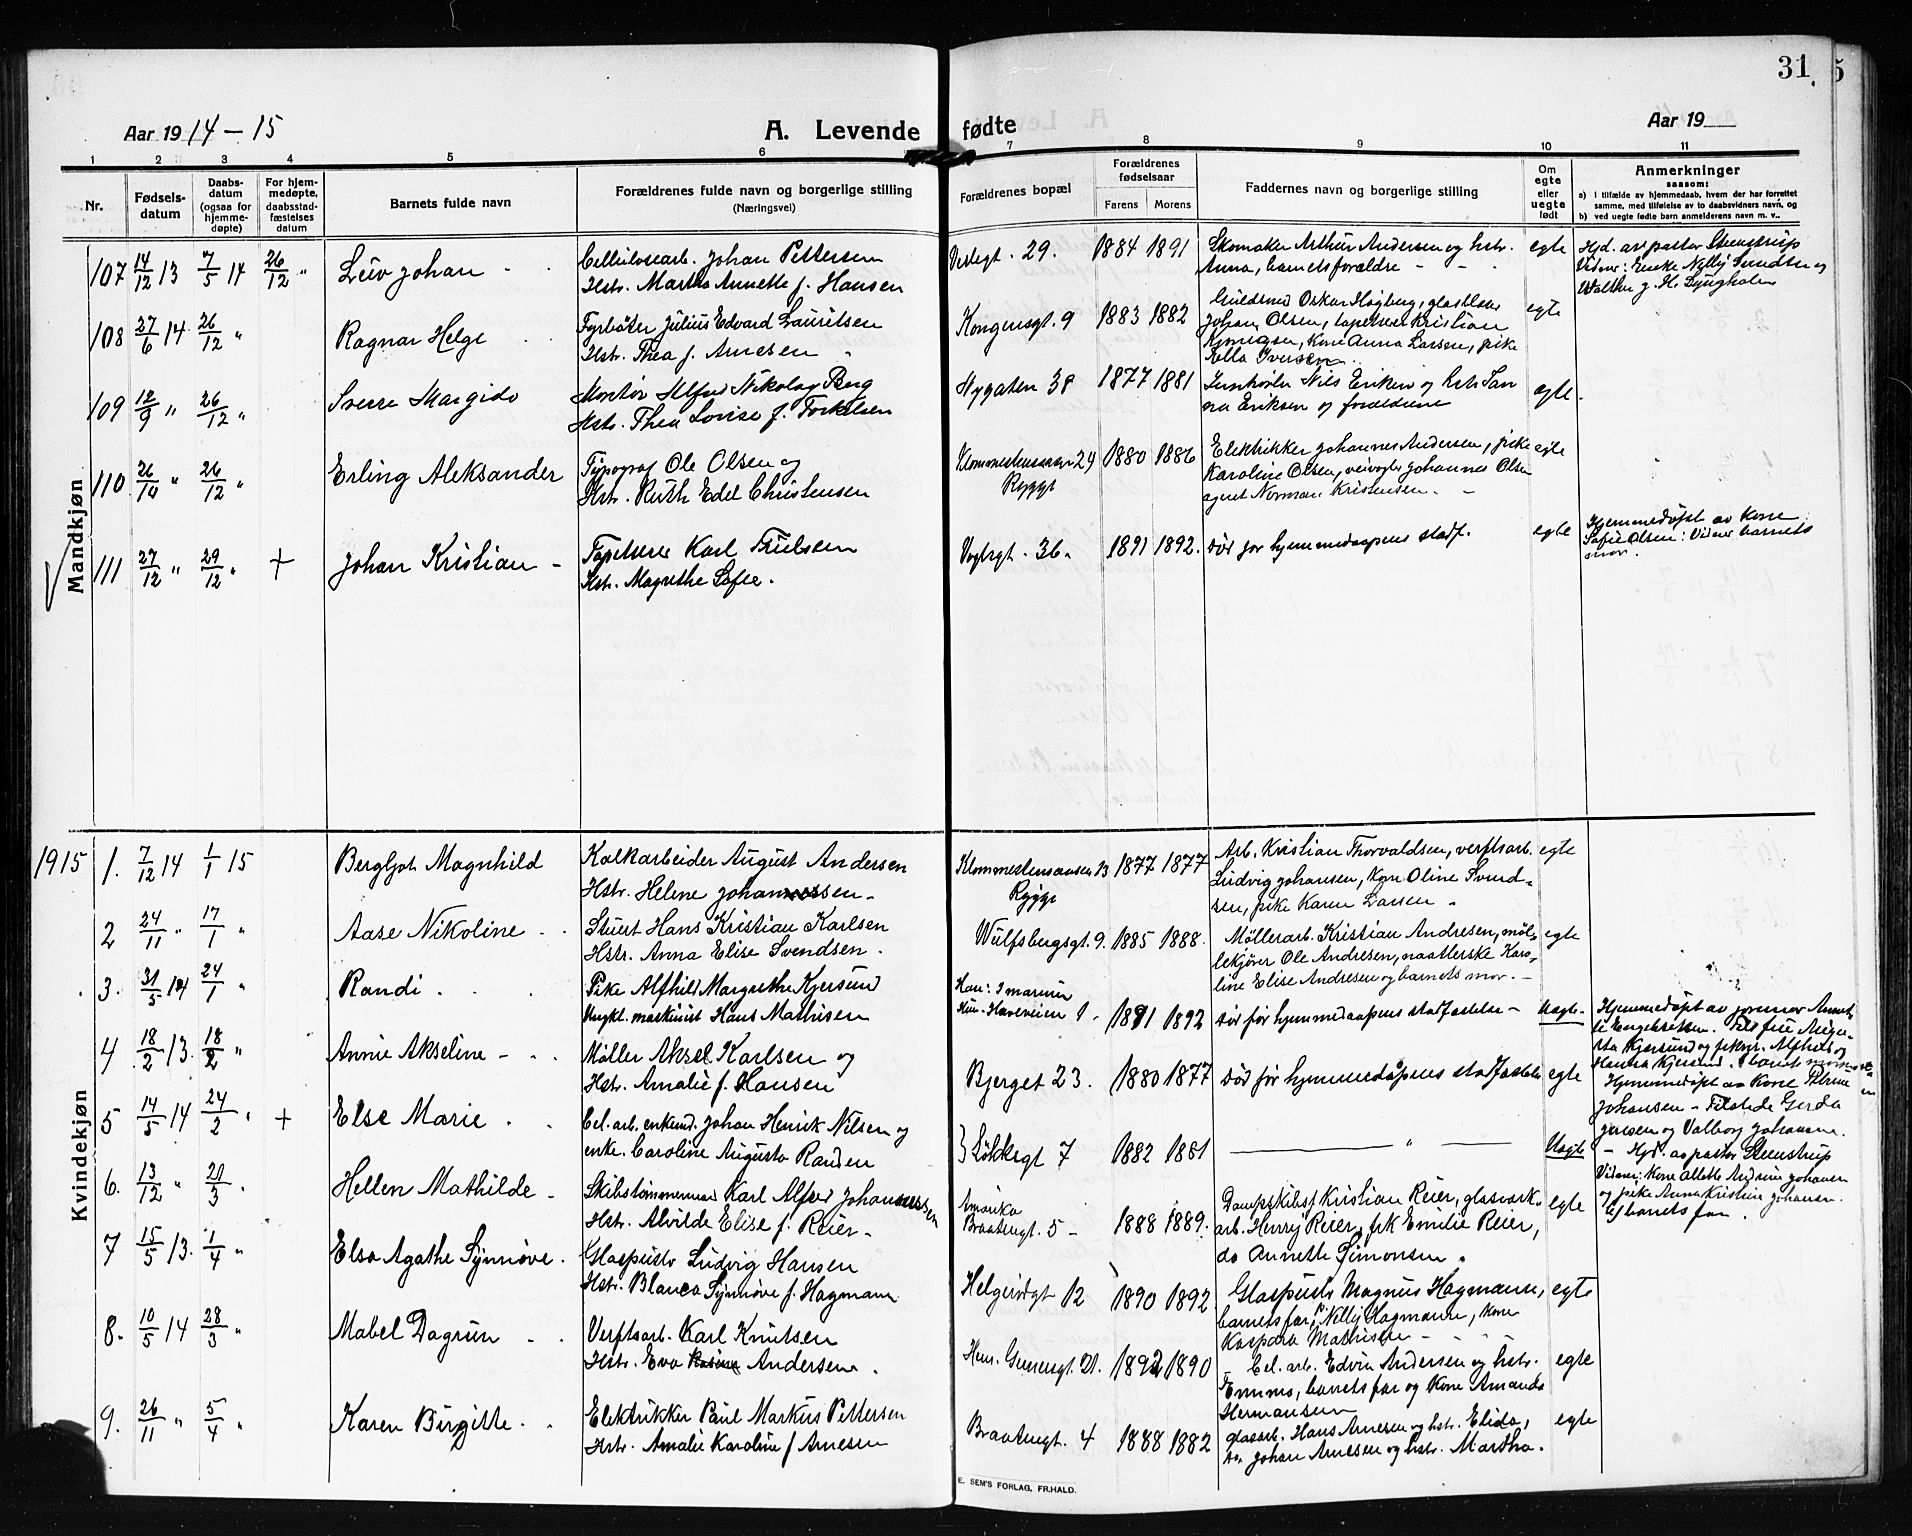 31
Aar 1914-15
A. Levende fødte
Aar 19
1 2 3 4 5 6 7 8 9 10 11
Nr.
Fødsels-
datum
Daabs-
datum
(ogsaa for
hjemme-
døpte)
For hjem-
medøpte,
daabsstad-
fæstelses
datum
Barnets fulde navn
Forældrenes fulde navn og borgerlige stilling
(Næringsvei)
Forældrenes bopæl
Forældrenes
fødselsaar
Farens Morens
Faddernes navn og borgerlige stilling
Om
egte
eller
uegte
født
Anmerkninger
saasom:
a) i tilfælde av hjemmedaab, hvem der har forrettet
samme, med tilføielse av to daabsvidners navn, og
b) ved uegte fødte barn anmelderens navn m. v..
Mandkjøn
107 14/12 13 7/5 14 26/12 "
Leiv Johan
Cellulosearb. Johan Pettersen
Hstr. Martha Annette f. Hansen
Verlegt. 29. 1884 1891
Skomaker Arthur Andersen og hstr.
Anna, barnets forældre
egte
Hjd. av pastor Steenstrup
108 27/6 14 26/12 "
Ragnar Helge
Fyrbøter Julius Edvard Lauritsen
Hstr. Thea f. Arnesen
Kongensgt. 9 1883 1882
Guldsmed Oskar Høgberg,
Johan Olsen, tapetserer Kristian
Kone Anna Larsen, pike
Ella Iversen
egte
109 12/9 " 26/12 "
Sverre Margido
Montør Alfred Nikolay Berg
Hstr. Thea Lovise f. Torkelsen
Nygaten 38 1877 1881
Nils Eriksen og hstr. San
na Eriksen og forældrene
egte.
110 26/10 " 26/12 "
Erling Aleksander
Typograf Ole Olsen og
Hstr. Ruth Edel Christensen
24 1880 1886
Rygge
Elektrikker Johannes Andersen, pike
Karoline Olsen, Johannes Olsen
agent Norman Kristensen.
egte
111 27/12 " 29/12 " +
Johan Kristian
Tapetserer Karl Truelsen
Hstr. Magrethe Sofie.
Vogtsgt. 36. 1891 1892.
død før hjemmedaapens stadf.
egte
Hjemmedøpt av Kone
Sofie Olsen: Vidner barnets
mor.
Kvindekjøn
1915 1. 7/12 14 1/1 15
Bergljot Magnhild
Kalkarbeider August Andersen
Hstr. Helene Johannessen
13 1877 1877
Rygge
Arb. Kristian Thorvaldsen, verftsarb.
Ludvig Johansen, Kone Oline Svend-
sen, pike Karen Larsen
egte
2 24/11 " 17/1 "
Aase Nikoline
Stuert Hans Kristian Karlsen
Hstr. Anna Elise Svendsen.
Wulfsbergsgt. 9. 1885 1888.
Møllerarb. Kristian Andresen, møl-
lekjører Ole Andresen, naatlerske Karo-
line Elise Andresen og barnets mor.
egte
3. 31/5 14 24/1 "
Randi
Pike Alfhild Margrethe Kjersund
Ungkl. maskinist Hans Mathisen
Han: I marinen
Hun: Haveveien 1 1891 1892
død før hjemmedaapens stadfæstelse
Uegte
Hjemmedøpt av jormor
4 18/2 13. 18/2 "
Annie Akseline
Møller Aksel Karlsen og
Hstr. Amalie f. Hansen
Bjerget 23. 1880 1877
død før hjemmedåpens stadfæstelse
egte
Hjemmedøpt av Kone Petrine
Johansen - Tilstede Gerda
Jensen og Valborg Johansen.
5 14/5 14 24/2 " +
Else Marie
Cel. arb. enkemd. Johan Henrik Nilsen og
enke. Caroline Augusta Randen
Løkkegt 7 1882 1881
"
Uegte
Hjd. av pastor Steenstrup
Vidner: Kone Alette Andrine Johansen
og pike Anna Kristine Johansen.
barnets far.
6. 13/12 " 21/3 "
Hellen Mathilde
Skibstømmermand Karl Alfred Johannessen
Hstr. Alvilde Elise f. Reier
Amerika
Braatengt. 5 1888 1889.
Dampskibsf. Kristian Reier, glasverk-
arb. Henry Reier, frk Emilie Reier,
do Annette Simonsen.
egte
7 15/5 13. 1/4 "
Elsa Agathe Synnøve.
Glaspuster Ludvig Hansen
Hstr. Blanca Synnøve f. Hagmann
Helgerødgt 12 1890 1892
Glaspuster Magnus Hagmann,
barnets far, Nelly Hagmann, Kone
Kaspara Mathisen
egte
8. 10/5 14 28/3 "
Mabel Dagrun
Verftsarb. Karl Knutsen
Hstr. Eva Andersen.
Henr. Gernersgt. 21. 1892 1890
Cel. arb. Edvin Andersen og hstr.
Emma, barnets far og Kone Amanda
Hermansen
egte
9. 26/11 " 5/4 "
Karen Birgitte
Elektrikker Paul Markus Pettersen
Hstr. Amalie Karoline f Arnesen
Braatengt. 4 1888 1882
glasarb. Hans Arnesen og hstr. Elida,
do Johan Arnesen og hstr. Martha.
egte
E. SEM'S FORLAG, FR.HALD.